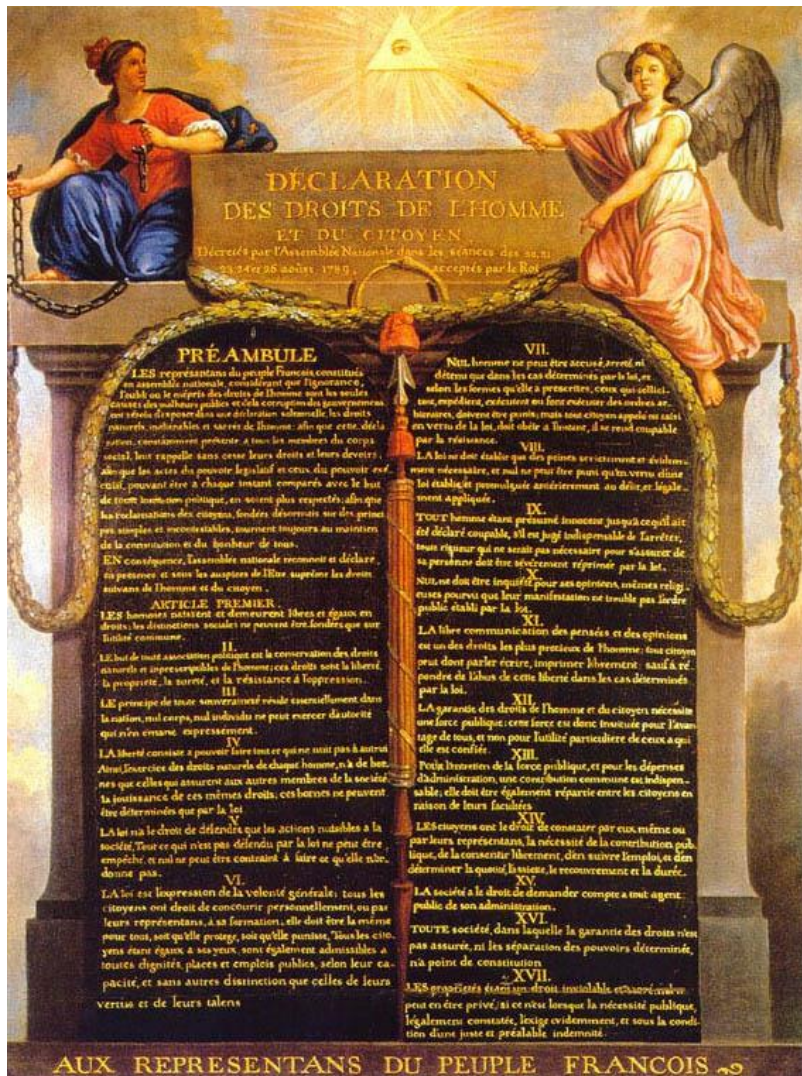 DÉCLARATION
DES DROITS DE L'HOMME
ET DU CITOYEN
Décretés par l'Assemblée Nationale dans les séances des 20, 21
23, 24 et 26 août 1789, acceptés par le Roi
PRÉAMBULE
LES représentans du peuple François, constitués
en assemblée nationale, considérant que l'ignorance,
l'oubli ou le mépris des droits de l'homme sont les seules
causes des malheurs publics et de la corruption des gouvernemens
ont résolu d'exposer dans une déclaration solemnelle, les droits
naturels, inaliénables et sacrés de l'homme: afin que cette décla
ration, constamment présente à tous les membres du corps
social, leur rappelle sans cesse leurs droits et leurs devoirs;
afin que les actes du pouvoir législatif et ceux du pouvoir exé
cutif, pouvant être à chaque instant comparés avec le but
de toute institution politique, en soient plus respectés; afin que
les réclamations des citoyens, fondées désormais sur des princi
pes simples et incontestables, tournent toujours au maintien
de la constitution et du bonheur de tous.
EN conséquence, l'assemblée nationale reconnoit et déclare,
en présence et sous les auspices de l'Etre suprême les droits
suivans de l'homme et du citoyen.
ARTICLE PREMIER.
LES hommes naissent et demeurent libres et égaux en
droits; les distinctions sociales ne peuvent être fondées que sur
l'utilité commune.
II.
LE but de toute association politique est la conservation des droits
naturels et imprescriptibles de l'homme; ces droits sont la liberté,
la propriété, la sureté, et la résistance à l'oppression.
III
LE principe de toute souveraineté réside essentiellement dans
la nation, nul corps, nul individu ne peut exercer d'autorité
qui n'en émane expressement.
IV
LA liberté consiste a pouvoir faire tout ce qui ne nuit pas à autrui
Ainsi, l'exercice des droits naturels de chaque homme, n'a de bor
nes que celles qui assurent aux autres membres de la société
la jouissance de ces mêmes droits; ces bornes ne peuvent
être déterminées que par la loi
V
LA loi n'a le droit de défendre que les actions nuisibles a la
société, Tout ce qui n'est pas défendu par la loi ne peut être
empêché, et nul ne peut être contraint à faire ce qu'elle n'or
donne pas.
VI.
LA loi est l'expression de la volonté générale; tous les
citoyens ont droit de concourir personnellement, ou par
leurs représentans, à sa formation; elle doit être la même
pour tous, soit qu'elle protege, soit qu'elle punisse, Tous les cito
yens étant égaux à ses yeux, sont également admissibles a
toutes dignités, places et emplois publics, selon leur ca
pacité, et sans autres distinction que celles de leurs
vertus et de leurs talens
VII.
NUL homme ne peut être accusé, arreté, ni
détenu que dans les cas déterminés par la loi, et
selon les formes qu'elle a prescrites, ceux qui sollici-
tent, expédient, exécutent ou font exécuter des ordres ar-
bitraires, doivent être punis; mais tout citoyen appelé ou saisi
en vertu de la loi, doit obéir à l'instant, il se rend coupable
par la résistance.
VIII.
LA loi ne doit établir que des peines strictement et évidem-
ment nécessaire, et nul ne peut être puni qu'en vertu d'une
loi établie et promulguée antérierement au délit, et légale-
ment appliquée.
IX.
TOUT homme étant présumé innocent jusqu'à ce qu'il ait
été déclaré coupable, s'il est jugé indispensable de l'arrêter,
toute rigueur qui ne serait pas nécessaire pour s'assurer de
sa personne doit être sévèrement réprimée par la loi.
X
NUL ne doit être inquiété pour ses opinions, mêmes religi-
euses pourvu que leur manifestation ne trouble pas l'ordre
public établi par la loi.
XI.
LA libre communication des pensées et des opinions
est un des droits les plus precieux de l'homme: tout citoyen
peut dont parler écrire, imprimer librement: sauf à ré-
pondre de l'abus de cette liberté dans les cas déterminés
par la loi.
XII.
LA garantie des droits de l'homme et du citoyen nécessite
une force publique; cette force est donc instituée pour l'avan
tage de tous, et non pour l'utilité particuliere de ceux a qui
elle est confiée.
XIII.
Pour l'entretien de la force publique, et pour les dépenses
d'administration, une contribution commune est indispen-
sable; elle doit être également répartie entre les citoyens en
raison de leurs facultées
XIV.
LES citoyens ont le droit de constater par eux même ou
par leurs représentans, la nécessité de la contribution pub-
lique, de la consentir librement, d'en suivre l'emploi, et d'en
déterminer la quotité, l'assiete, le recouvrement et la durée.
XV.
LA société a le droit de demander compte a tout agent
public de son administration.
XVI.
TOUTE société, dans laquelle la garantie des droits n'est
pas assurée, ni les séparation des pouvoirs déterminée,
n'a point de constitution
XVII.
LES propriétés étant un droit inviolable et sacré, nul ne
peut en être privé, si ce n'est lorsque la nécessité publique,
légalement constatée, l'exige evidemment, et sous la condi-
tion d'une juste et préalable indemnité.
AUX REPRESENTANS DU PEUPLE FRANCOIS